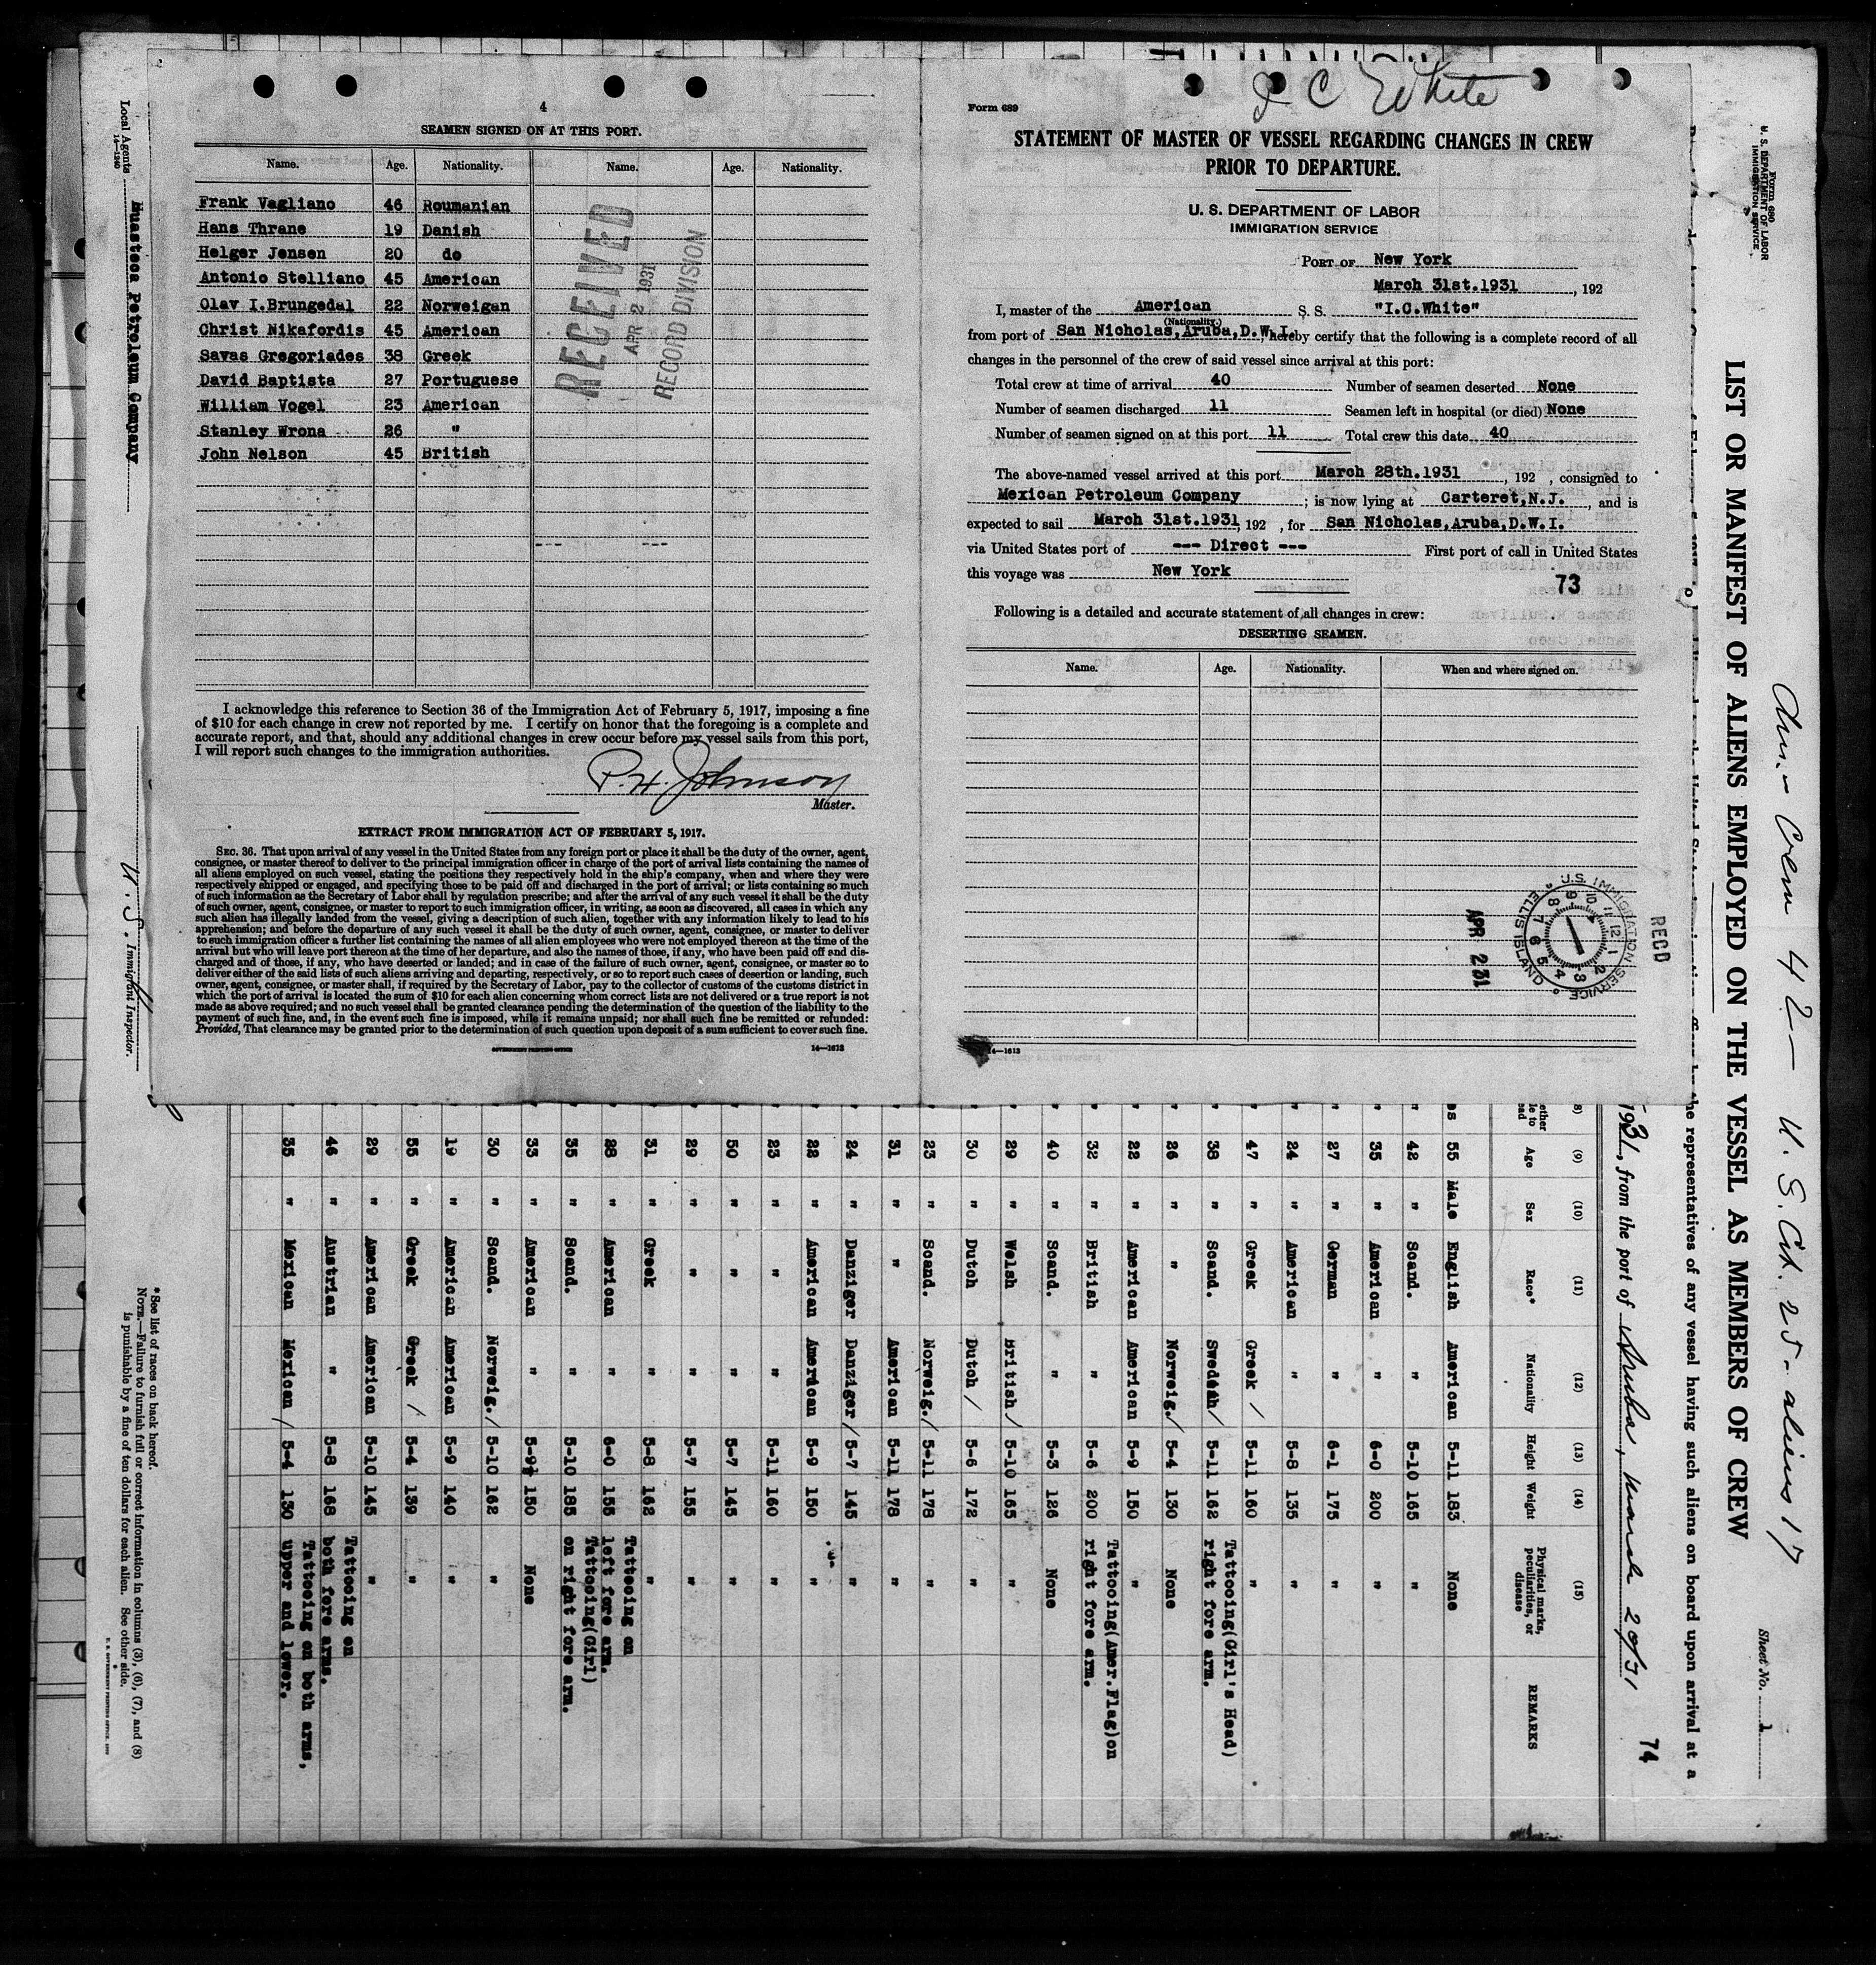 4
SEAMEN SIGNED ON AT THIS PORT.
Name. Age. Nationality. Name. Age. Nationality.
Frank Vagliano 46 Roumanian
Hans Thrane 19 Danish
Helger Jensen 20 do
Antonio Stelliano 45 American
Olav I.Brungedal 22 Norweigan
Christ Nikafordis 45 American
Savas Gregoriades 38 Greek
David Baptista 27 Portuguese
William Vogel 23 American
Stanley Wrona 26 "
John Nelson 45 British
RECEIVED
APR 2 1931
RECORD DIVISION
I acknowledge this reference to Section 36 of the Immigration Act of February 5, 1917, imposing a fine
of $10 for each change in crew not reported by me. I certify on honor that the foregoing is a complete and
accurate report, and that, should any additional changes in crew occur before my vessel sails from this port,
I will report such changes to the immigration authorities.
P.H. Johnson
Master.
EXTRACT FROM IMMIGRATION ACT OF FEBRUARY 5, 1917.
SEC. 36. That upon arrival of any vessel in the United States from any foreign port or place it shall be the duty of the owner, agent,
consignee, or master thereof to deliver to the principal immigration officer in charge of the port of arrival lists containing the names of
all aliens employed on such vessel, stating the positions they respectively hold in the ship's company, when and where they were
respectively shipped or engaged, and specifying those to be paid off and discharged in the port of arrival; or lists containing so much
of such information as the Secretary of Labor shall by regulation prescribe; and after the arrival of any such vessel it shall be the duty
of such owner, agent, consignee, or master to report to such immigration officer, in writing, as soon as discovered, all cases in which any
such alien has illegally landed from the vessel, giving a description of such alien, together with any information likely to lead to his
apprehension; and before the departure of any such vessel it shall be the duty of such owner, agent, consignee, or master to deliver
to such immigration officer a further list containing the names of all alien employees who were not employed thereon at the time of the
arrival but who will leave port thereon at the time of her departure, and also the names of those, if any, who have been paid off and dis-
charged and of those, if any, who have deserted or landed; and in case of the failure of such owner, agent, consignee, or master so to
deliver either of the said lists of such aliens arriving and departing, respectively, or so to report such cases of desertion or landing, such
owner, agent, consignee, or master shall, if required by the Secretary of Labor, pay to the collector of customs of the customs district in
which the port of arrival is located the sum of $10 for each alien concerning whom correct lists are not delivered or a true report is not
made as above required; and no such vessel shall be granted clearance pending the determination of the question of the liability to the
payment of such fine, and, in the event such fine is imposed, while it remains unpaid; nor shall such fine be remitted or refunded:
Provided, That clearance may be granted prior to the determination of such question upon deposit of a sum sufficient to cover such fine.
GOVERNMENT PRINTING OFFICE 14—1613
I C White
Form 689
STATEMENT OF MASTER OF VESSEL REGARDING CHANGES IN CREW
PRIOR TO DEPARTURE.
U. S. DEPARTMENT OF LABOR
IMMIGRATION SERVICE
PORT OF New York
March 31st.1931, 192
I, master of the American S. S. "I.C.White"
(Nationality.)
from port of San Nicholas,Aruba,D.W.I. hereby certify that the following is a complete record of all
changes in the personnel of the crew of said vessel since arrival at this port:
Total crew at time of arrival 40 Number of seamen deserted None
Number of seamen discharged 11 Seamen left in hospital (or died) None
Number of seamen signed on at this port 11 Total crew this date 40
The above-named vessel arrived at this port March 28th.1931, 192 , consigned to
Mexican Petroleum Company ; is now lying at Carteret,N.J. , and is
expected to sail March 31st.1931, 192 , for San Nicholas,Aruba,D.W.I.
via United States port of --- Direct --- First port of call in United States
this voyage was New York
73
Following is a detailed and accurate statement of all changes in crew:
DESERTING SEAMEN.
Name. Age. Nationality. When and where signed on.
RECD
U.S. IMMIGRATION SERVICE
ELLIS ISLAND
APR 2 31
14—1613
Form 680
U. S. DEPARTMENT OF LABOR
IMMIGRATION SERVICE
Sheet No. 1
LIST OR MANIFEST OF ALIENS EMPLOYED ON THE VESSEL AS MEMBERS OF CREW
42 — U. S. Cit. 25 — aliens 17
the representatives of any vessel having such aliens on board upon arrival at a
1931, from the port of Aruba, March 20/31
74
(9) (10) (11) (12) (13) (14) (15)
Age Sex Race* Nationality Height Weight Physical marks, peculiarities, or disease REMARKS
55 Male English American 5-11 183 None
42 " Scand. " 5-10 165 "
35 " American " 6-0 200 "
27 " German " 6-1 175 "
24 " American " 5-8 135 "
47 " Greek Greek / 5-11 160 "
38 " Scand. Swedish/ 5-11 162 Tattooing(Girl's Head) right fore arm.
26 " " Norweig./ 5-4 130 None
22 " American American 5-9 150 "
32 " British " 5-6 200 Tattooing(Amer.Flag)on right fore arm.
40 " Scand. " 5-3 126 None
29 " Welsh British/ 5-10 165 "
30 " Dutch Dutch / 5-6 172 "
23 " Scand. Norweig./ 5-11 178 "
31 " " American 5-11 178 "
24 " Danziger Danziger/ 5-7 145 "
22 " American American 5-9 150 "
23 " " " 5-11 160 "
50 " " " 5-7 145 "
29 " " " 5-7 155 "
31 " Greek " 5-8 162 "
28 " American " 6-0 155 Tattooing on left fore arm.
35 " Scand. " 5-10 185 Tattooing(Girl) on right fore arm.
33 " American " 5-9½ 150 None
30 " Scand. Norweig./ 5-10 162 "
19 " American American 5-9 140 "
55 " Greek Greek / 5-4 139 "
29 " American American 5-10 145 "
46 " Austrian " 5-8 168 Tattooing on both fore arms.
35 " Mexican Mexican / 5-4 130 Tattooing on both arms, upper and lower.
*See list of races on back hereof.
NOTE.—Failure to furnish full or correct information in columns (3), (6), (7), and (8)
is punishable by a fine of ten dollars for each alien. See other side.
Local Agents Huasteca Petroleum Company
14—1240
U. S. Immigrant Inspector.